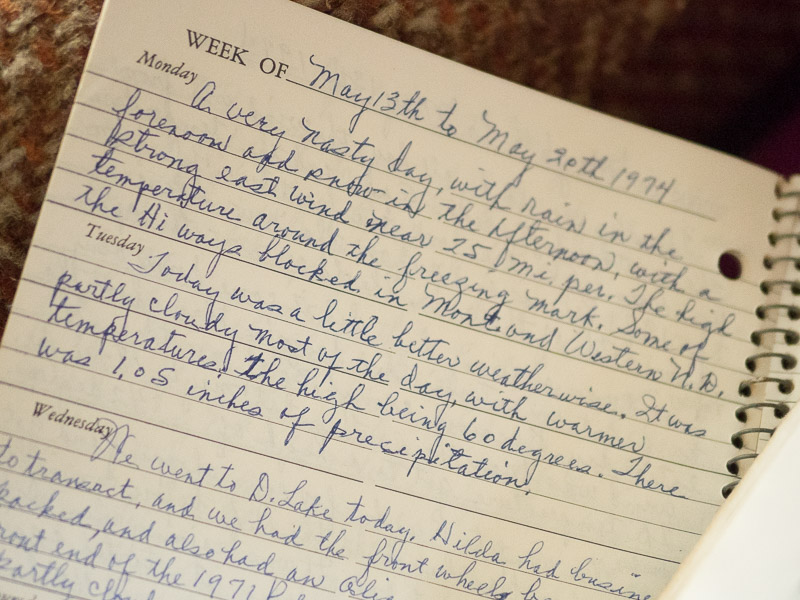 WEEK OF May 13th to May 20th 1974
Monday
A very nasty day, with rain in the
forenoon and snow in the afternoon, with a
strong east wind near 25 mi. per. The high
temperature around the freezing mark. Some of
the Hi ways blocked in Mont. and Western N. D.
Tuesday
Today was a little better weatherwise. It was
partly cloudy most of the day, with warmer
temperatures. The high being 60 degrees. There
was 1.05 inches of precipitation.
Wednesday
We went to D. Lake today. Hilda had busine
to transact, and we had the front wheels
packed, and also had an
front end of the 1971
partly